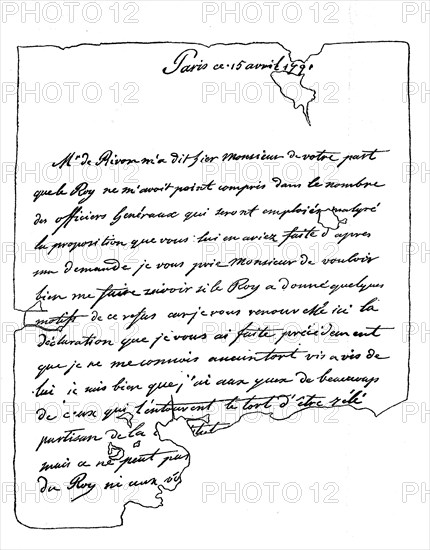 Paris ce 15 avril 1791
Mr de Rivon m'a dit hier Monsieur de votre part
que le Roy ne m'avoit point compris dans le nombre
des officiers Generaux qui seront emploiés malgré
la proposition que vous lui en aviez faite d'apres
ma demande je vous prie Monsieur de vouloir
bien me faire savoir si le Roy a donné quelques
motifs de ce refus car je vous renouvelle ici la
déclaration que je vous ai faite précédement
que je ne me connois aucun tort vis a vis de
lui je sais bien que j'ai aux yeux de beaucoup
de ceux qui l'entourent le tort d'être zélé
partisan de la
mais ce ne peut pas
du Roy ni aux
PHOTO 12